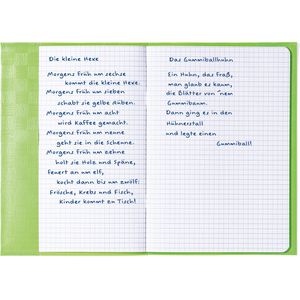 Die kleine Hexe
Morgens früh um sechse
kommt die kleine Hexe.
Morgens früh um sieben
schabt sie gelbe Rüben.
Morgens früh um acht
wird Kaffee gemacht.
Morgens früh um neune
geht sie in die Scheune.
Morgens früh um zehne
holt sie Holz und Späne,
feuert an um elf,
kocht dann bis um zwölf:
Frösche, Krebs und Fisch,
Kinder kommt zu Tisch!
Das Gummiballhuhn
Ein Huhn, das fraß,
man glaubt es kaum,
die Blätter von 'nem
Gummibaum.
Dann ging es in den
Hühnerstall
und legte einen
Gummiball!